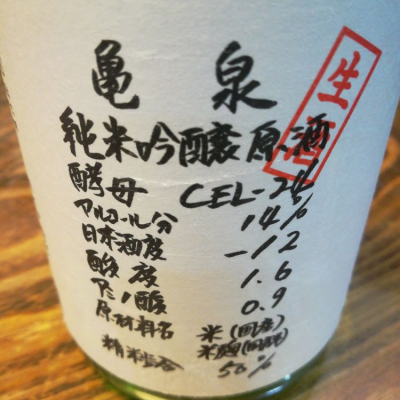 亀泉
純米吟醸原酒
生酒
酵母 CEL-24
アルコール分 14%
日本酒度 -12
酸度 1.6
アミノ酸 0.9
原材料名 米(国産)
米麹(国産米)
精米歩合 50%